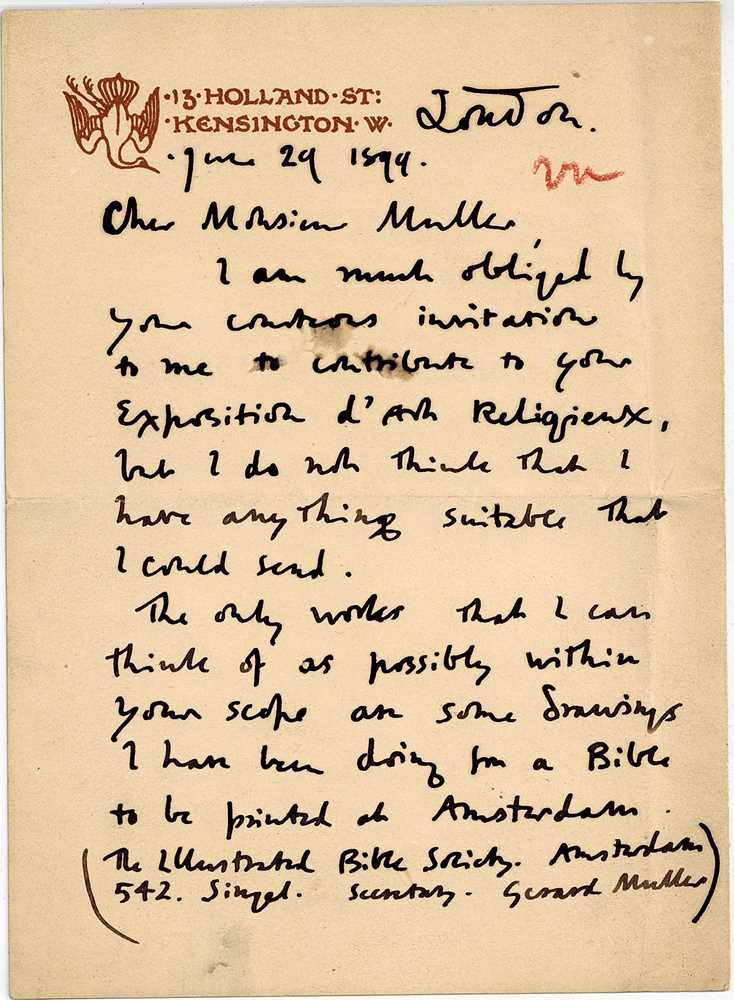 ·13·HOLLAND·ST:
·KENSINGTON·W· London.
·June 29 1899.
Cher Monsieur Muller,
I am much obliged by
your courteous invitation
to me to contribute to your
Exposition d'Art Religieux,
but I do not think that I
have anything suitable that
I could send.
The only works that I can
think of as possibly within
your scope are some drawings
I have been doing for a Bible
to be printed at Amsterdam.
(The Illustrated Bible Society. Amsterdam
542. Singel. Secretary. Gerard Muller)